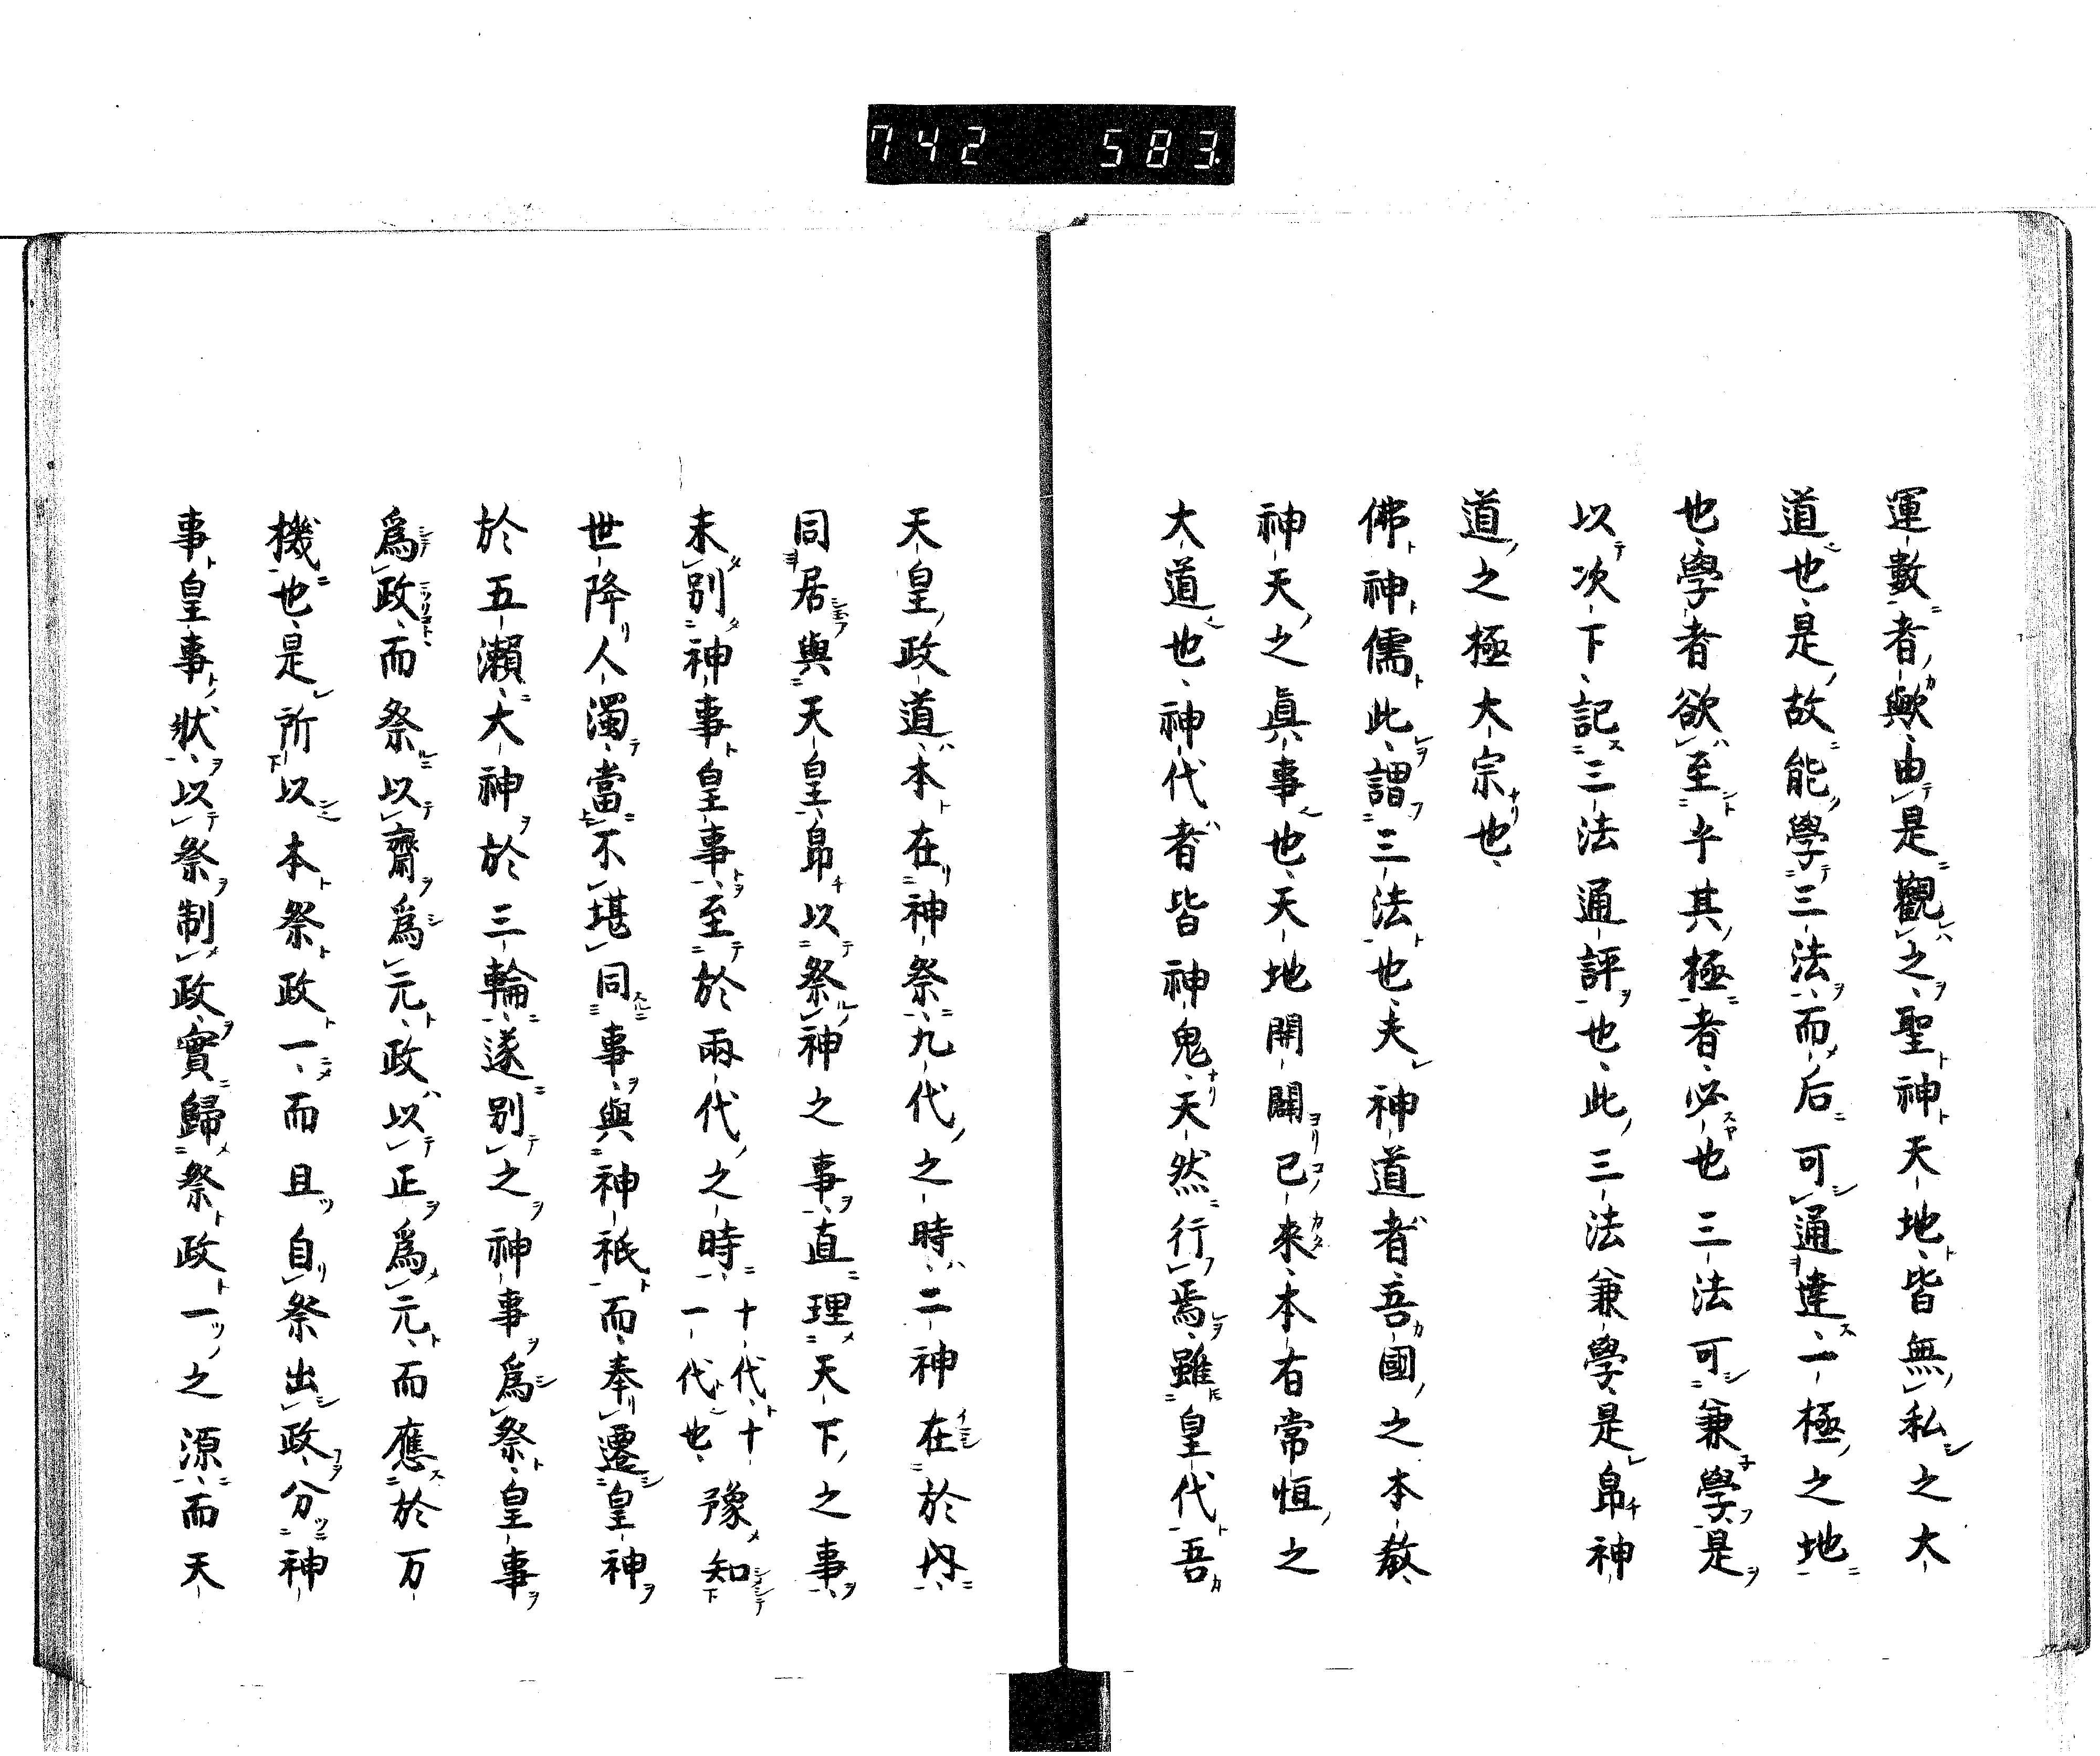 742 583.
運數者歟由是觀之聖神天地皆無私之大
道也是故能學三法而后可通達一極之地
也學者欲至乎其極者必也三法可兼學是
以次下記三法通評也此三法兼學是帰神
道之極大宗也
佛神儒此謂三法也夫神道者吾國之本教
神天之眞事也天地開闢已來本有常恒之
大道也神代者皆神鬼天然行焉雖皇代吾
天皇政道本在神祭九代之時二神在於内
同居與天皇帛以祭神之事直理天下之事
未別神事皇事至於兩代之時十代十一代也豫知
世降人濁當不堪同事與神祇而奉遷皇神
於五瀨大神於三輪遂別之神事爲祭皇事
爲政而祭以齋爲元政以正爲元而應於万
機也是所以本祭政一而且自祭出政分神
事皇事狀以祭制政實歸祭政一之源而天